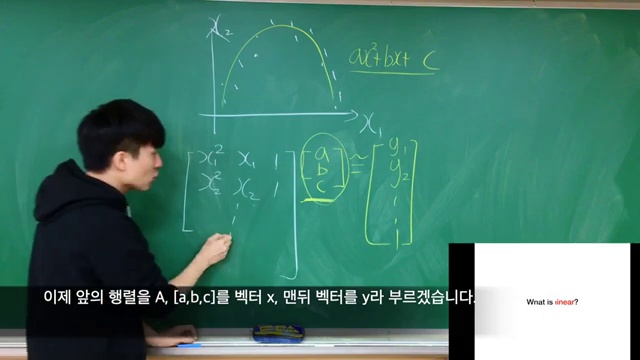 x₂
ax²+bx+ c
x₁
x₁² x₁ 1
x₂² x₂ 1
a
b
c
≈
y₁
y₂
이제 앞의 행렬을 A, [a,b,c]를 벡터 x, 맨뒤 벡터를 y라 부르겠습니다.
What is linear?